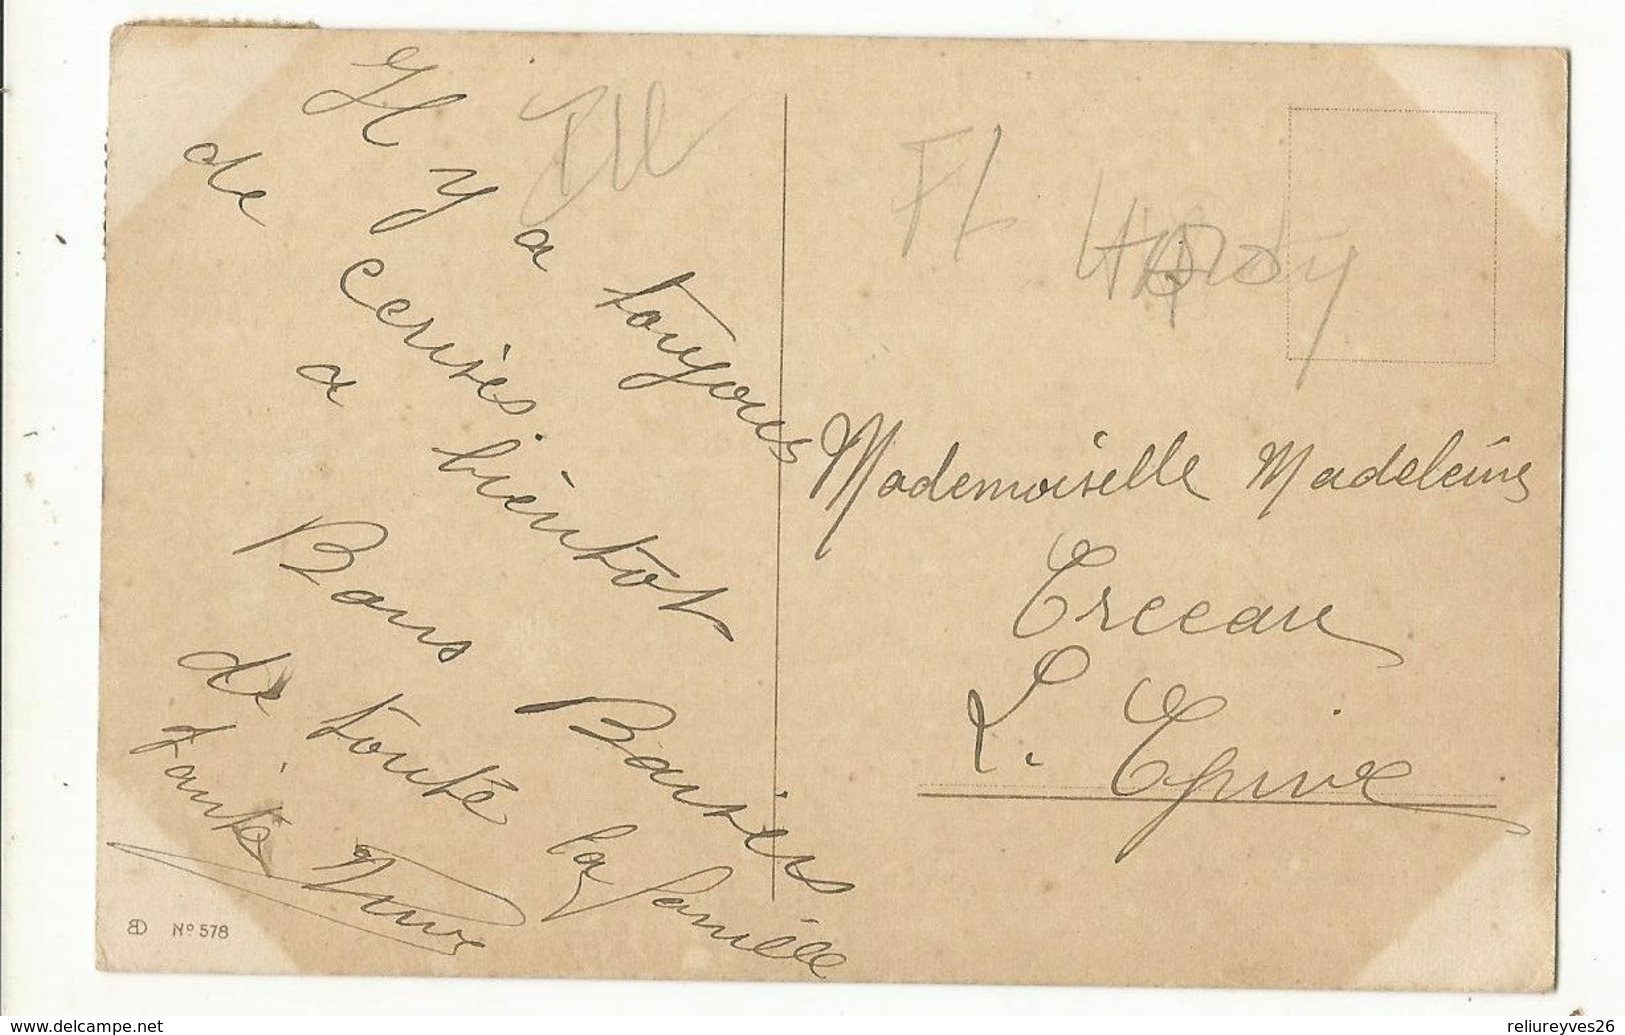 Il y a toujours
de cerises
a bientot
Bons Baisers
de toute la famille
Tante
Ill
FL HARDY
Mademoiselle Madeleine
L. Epine
BD Nº 578
www.delcampe.net
reliureyves26